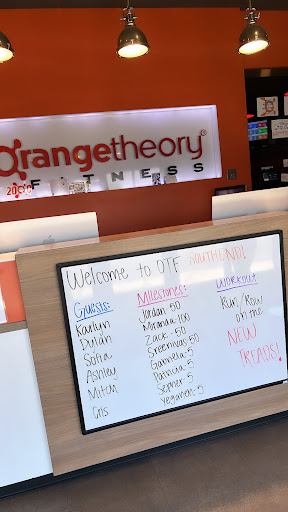 Orangetheory®
FITNESS
Welcome to OTF SOUTHEND!
Guests:
Kaitlyn
Dylan
Sofia
Ashley
Mitch
Cris
Milestones:
Jordan 50
Miranda 100
Zack - 50
Sreenivas 50
Gabriela - 5
Patricia - 5
Sepher - 5
Yeganeh - 5
Workout
Run/Row
on me
NEW
TREADS!